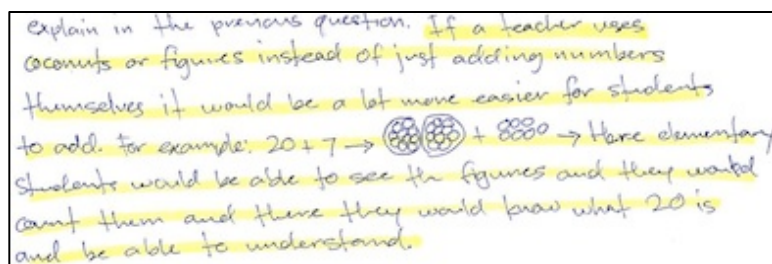 explain in the previous question. If a teacher uses
coconuts or figures instead of just adding numbers
themselves it would be a lot more easier for students
to add. For example: 20 + 7 → + → Here elementary
students would be able to see th figures and they would
count them and there they would know what 20 is
and be able to understand.